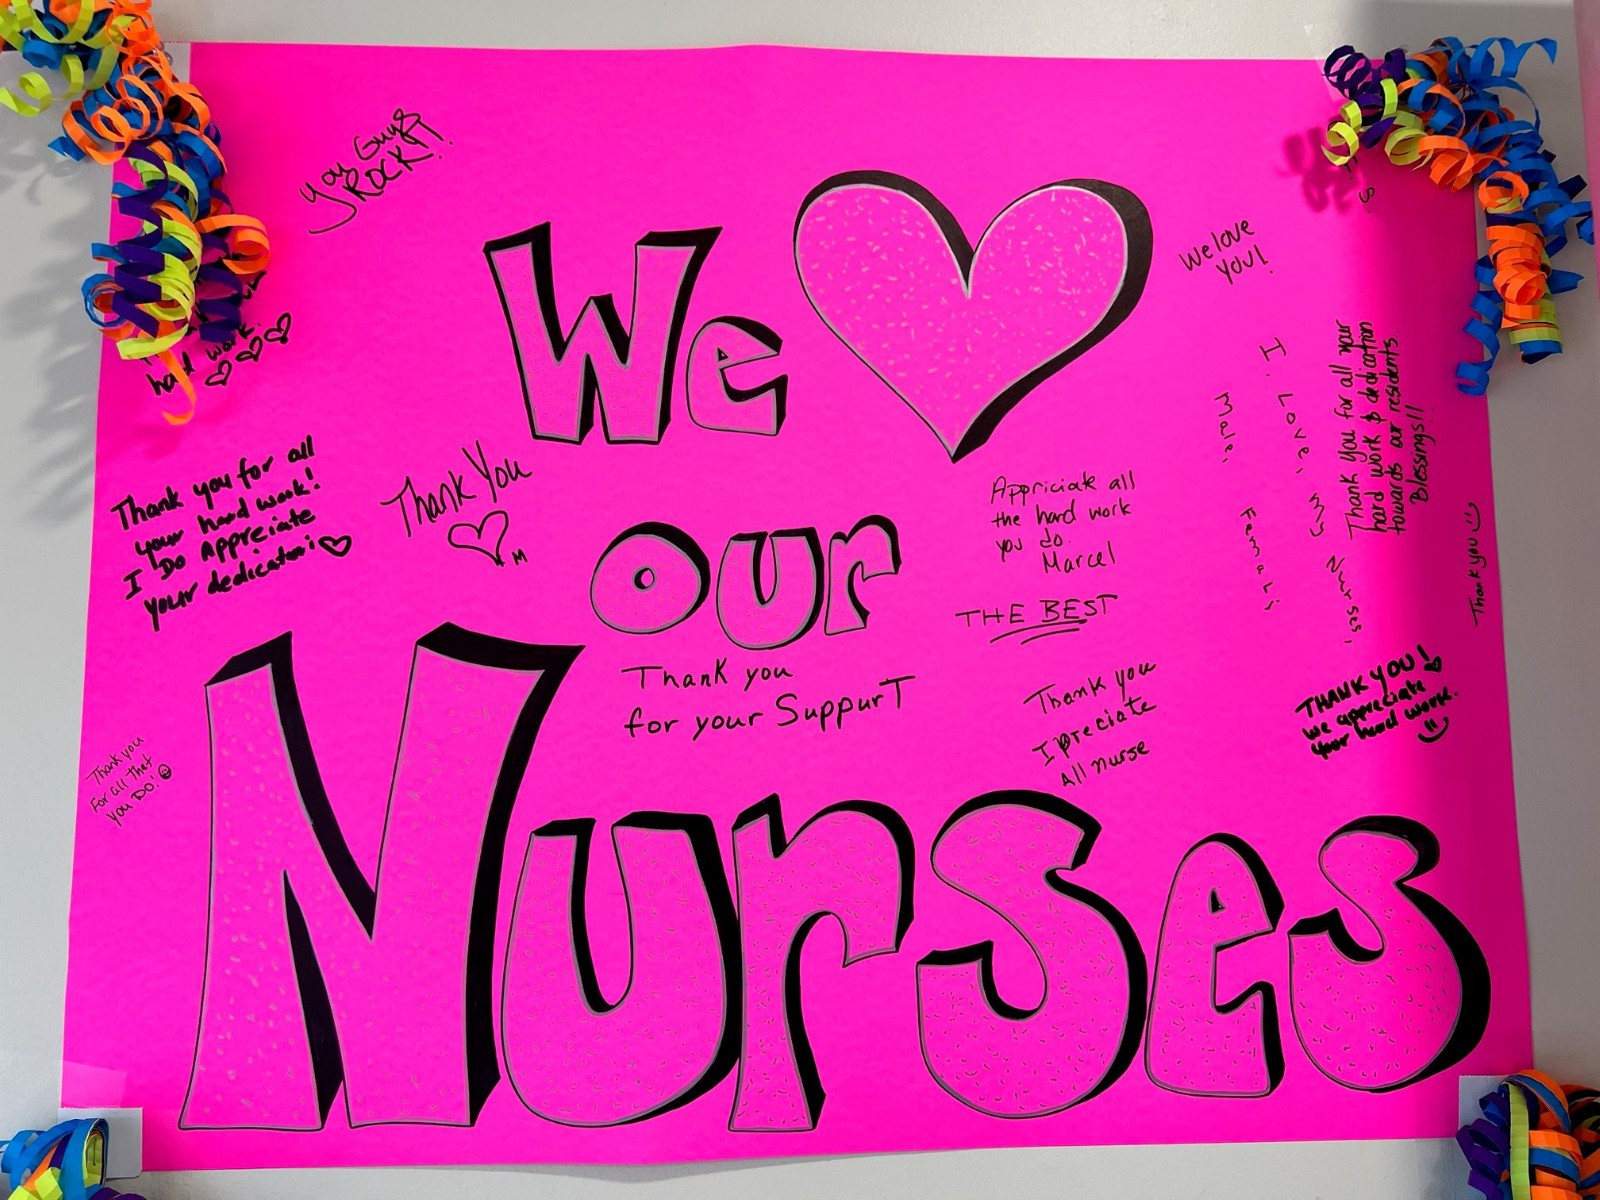 You Guys
ROCK!!
We
our
Nurses
We love
you!
hard work
Thank you for all
your hard work!
I Do Appreciate
your dedication!
Thank You
M
Appriciate all
the hard work
you do.
Marcel
THE BEST
Thank you
for your SuppurT
Thank you
I preciate
All nurse
I. Love, My Nurses,
Male, Femali
Thank you for all your
hard work & dedication
towards our residents
Blessings!!
Thank you
THANK YOU!
we appreciate
your hard work.
Thank you
For all that
you DO!